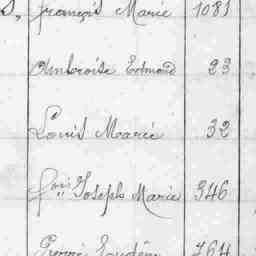 François Marie 1081
Ambroise Edmond 23
Louis Marie 32
Joseph Marie 346
Pierre 764